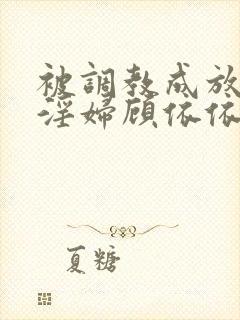 被調教成放
淫婦顾依依
夏糖